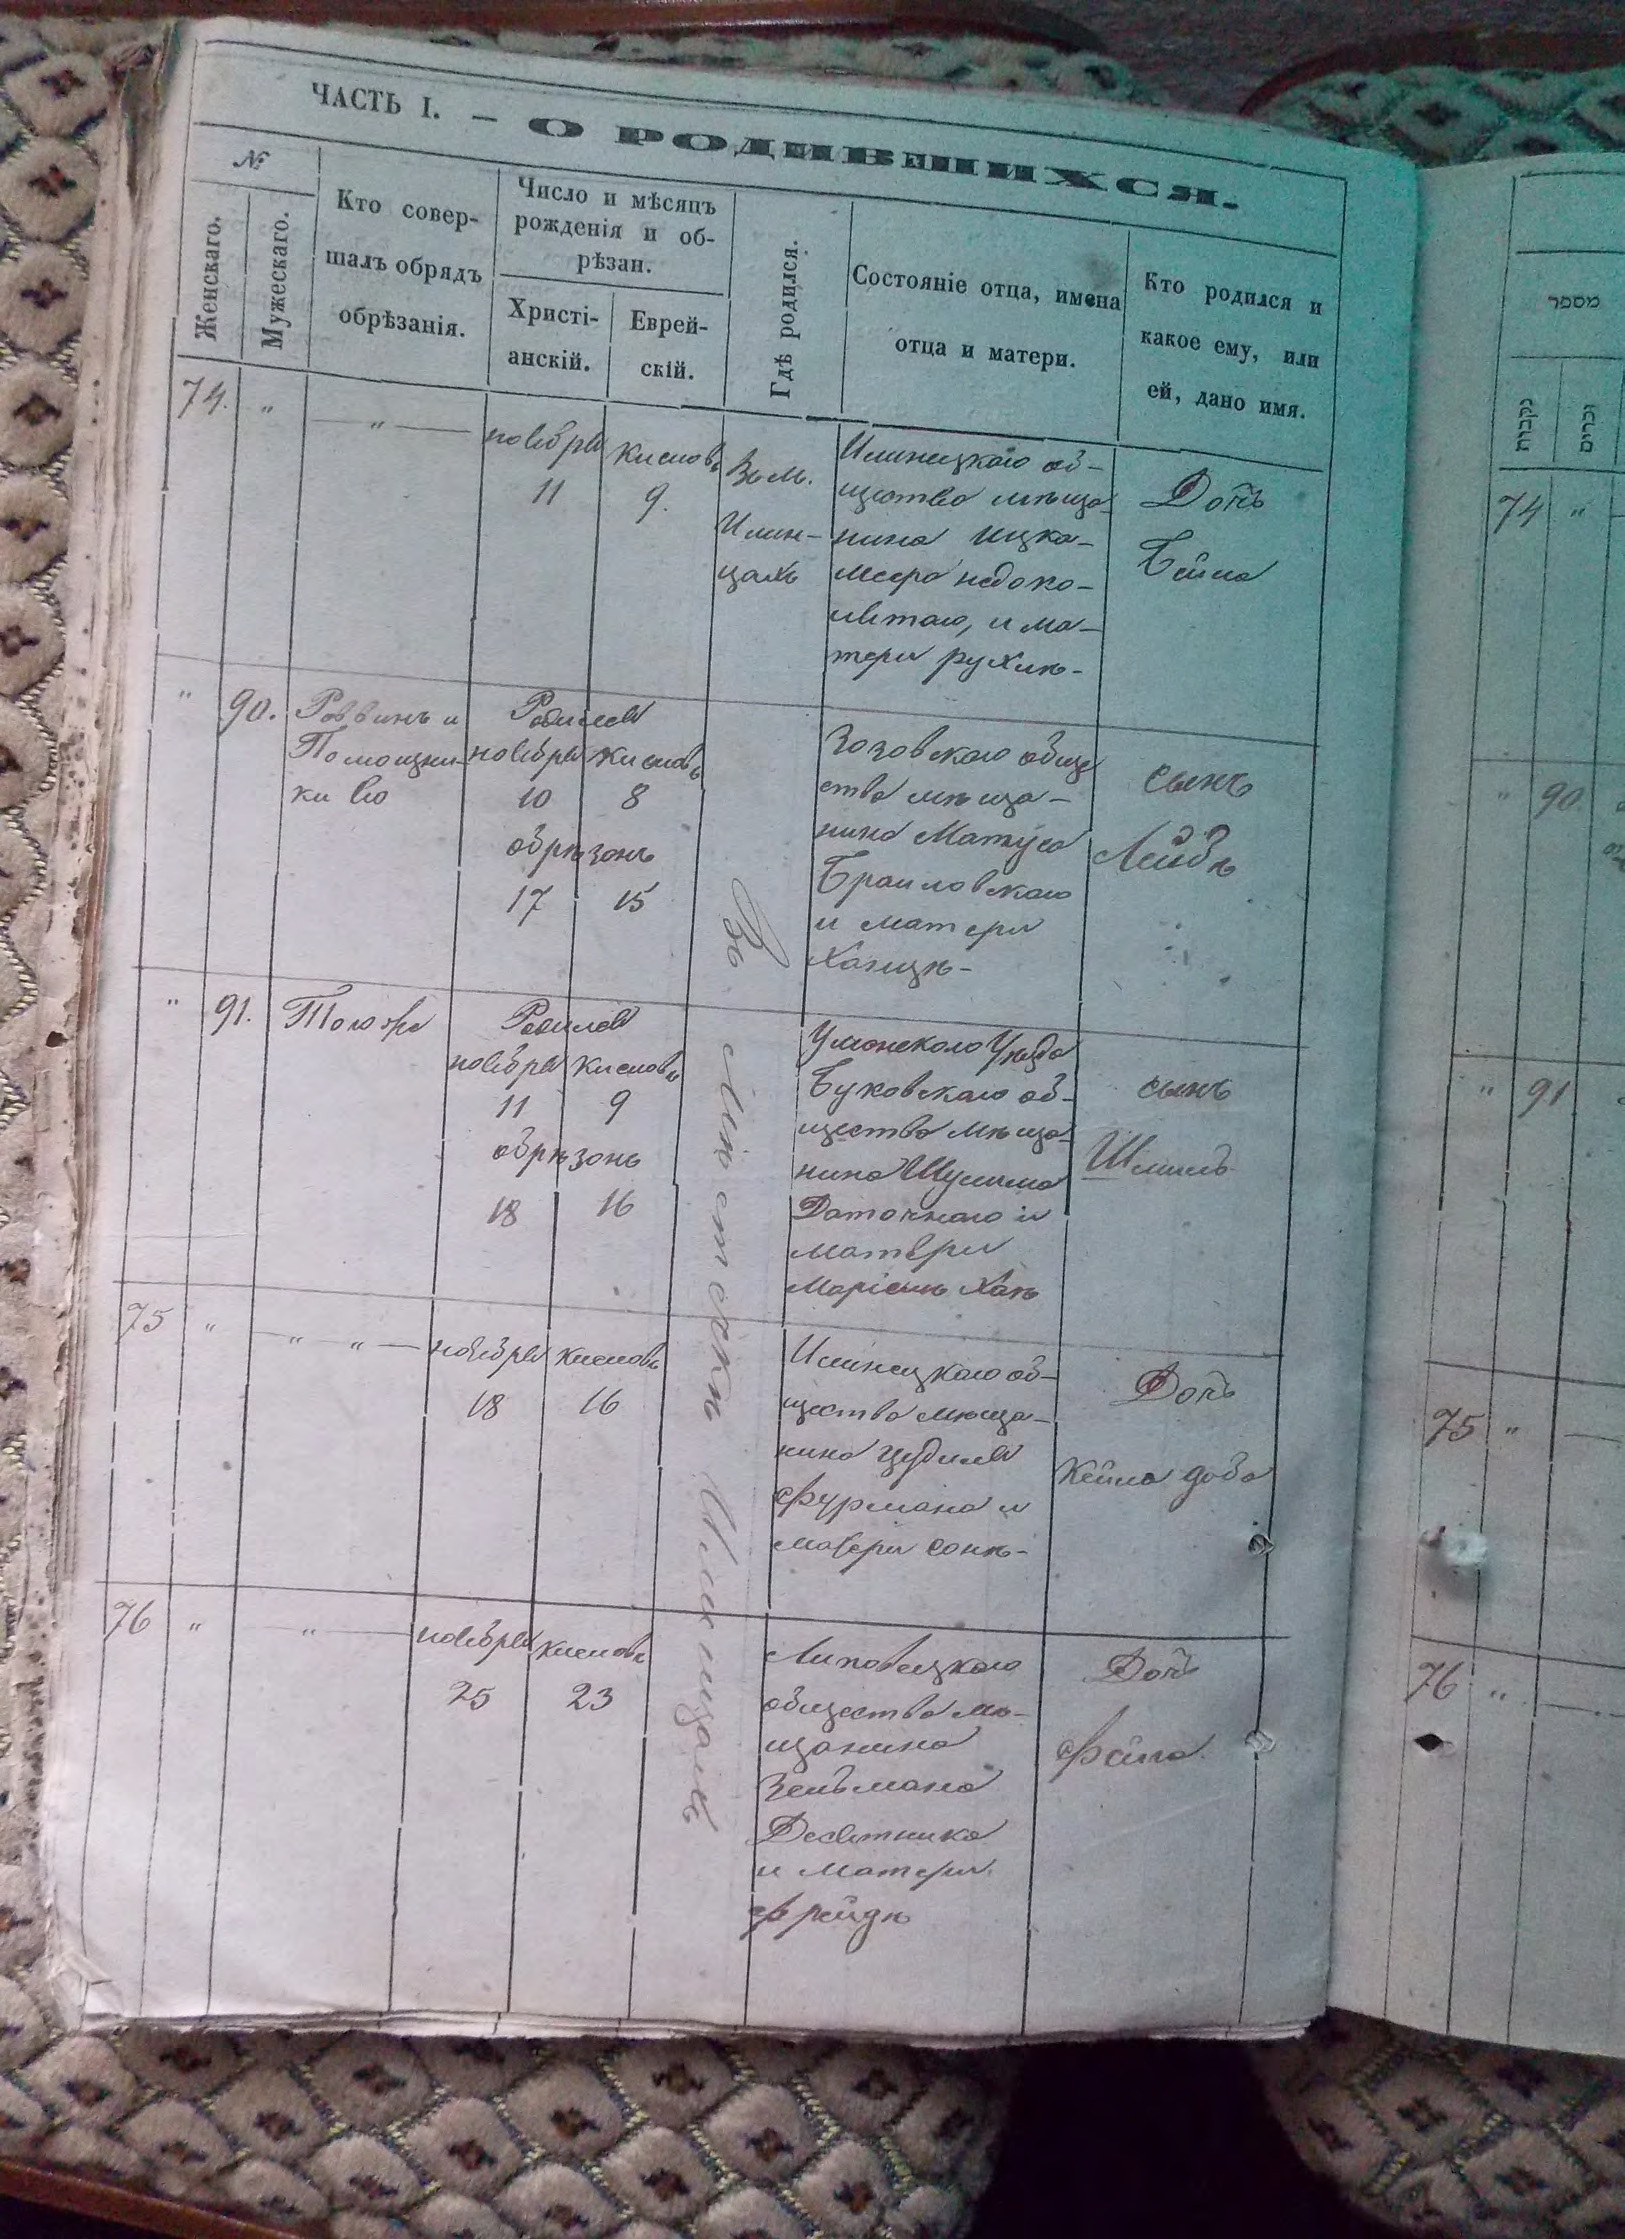 ЧАСТЬ I. — О РОДИВШИХСЯ.
№
Женскаго.
Мужескаго.
Кто совер-
шалъ обрядъ
обрѣзанія.
Число и мѣсяцъ
рожденія и об-
рѣзан.
Христі-
анскій.
Еврей-
скій.
Гдѣ родился.
Состояніе отца, имена
отца и матери.
Кто родился и
какое ему, или
ей, дано имя.
74. " — " —
ноября
11
Кислов
9.
Въ м.
Илин-
цахъ
Илинецкаго об-
щества мѣща-
нина Ицка-
меера недоко-
лѣтаго, и ма-
тери рухлѣ-
Дочь
Бейла
" 90.
Раввинъ и
Помощни-
ки его
Родился
ноября
10
Кислов
8
обрѣзанъ
17 15
Зозовскаго обще
ства мѣща-
нина Матуса
Браиловскаго
и матери
Ханцѣ-
сынъ
Лейбъ
" 91.
Родился
ноября
11
Кислов
9
обрѣзанъ
18 16
Уманскаго Уѣзда
Буковскаго об-
щества мѣща-
нина Шулима
Даточнаго и
матери
Маріемъ Хаѣ
сынъ
Шмилъ
75 " — " " —
ноября
18
Кислов
16
Илинецкаго об-
щества мѣща-
нина
Фурмана и
матери Сонѣ-
Дочь
Кейла доба
76 " " —
ноября
25
Кислов
23
Липовецкаго
общества мѣ-
щанина
Зельмана
Десятника
и матери
Фрейдѣ
Дочь
Фейга
Въ мѣстечкѣ Илинцахъ
מספר
נקבות
זכרים
74 "
" 90.
" 91
75 "
76 "